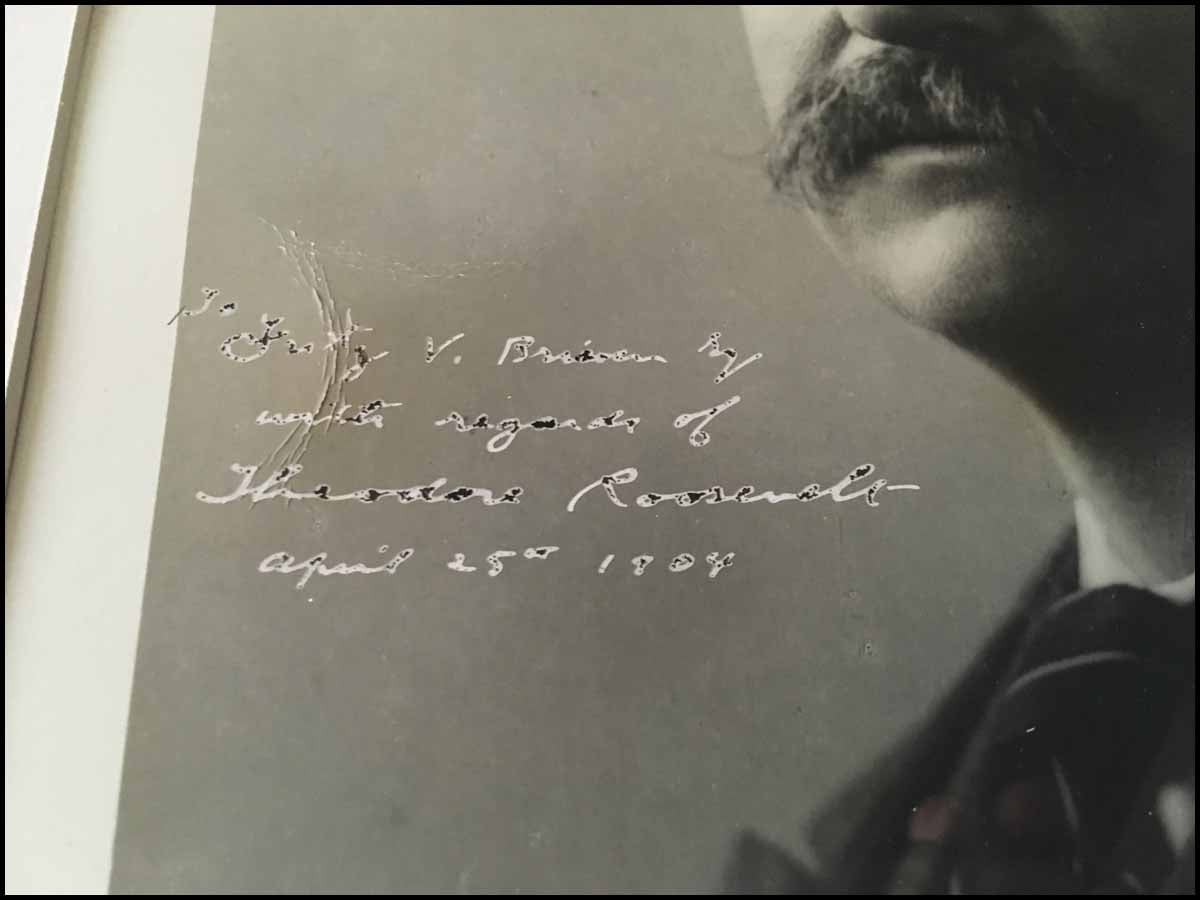 To
Fritz V. Briesen by
with regards of
Theodore Roosevelt
April 25th 1904